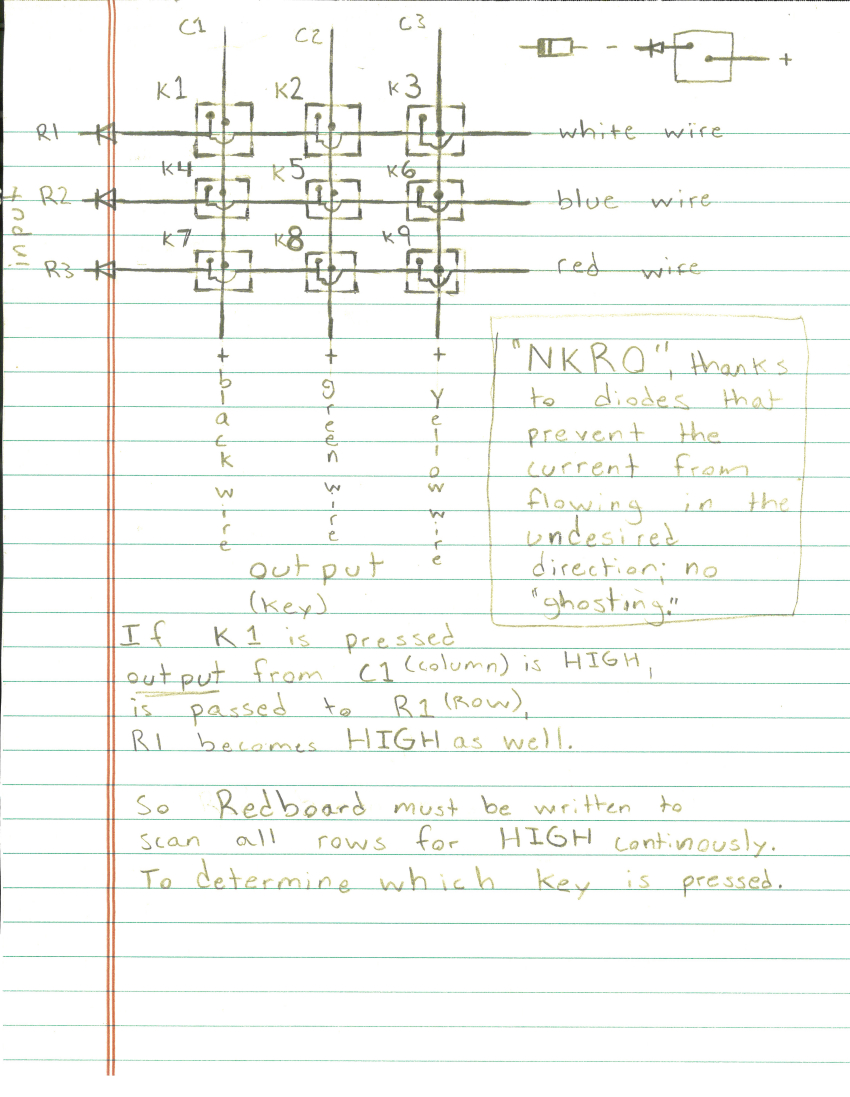 C1 C2 C3
K1 K2 K3
+
R1 white wire
K4 K5 K6
R2 blue wire
input
K7 K8 K9
R3 red wire
+ + +
black wire
green wire
yellow wire
"NKRO", thanks
to diodes that
prevent the
current from
flowing in the
undesired
direction; no
"ghosting."
output
(key)
If K1 is pressed
output from C1 (column) is HIGH,
is passed to R1 (Row),
R1 becomes HIGH as well.
So Redboard must be written to
scan all rows for HIGH continously.
To determine which key is pressed.